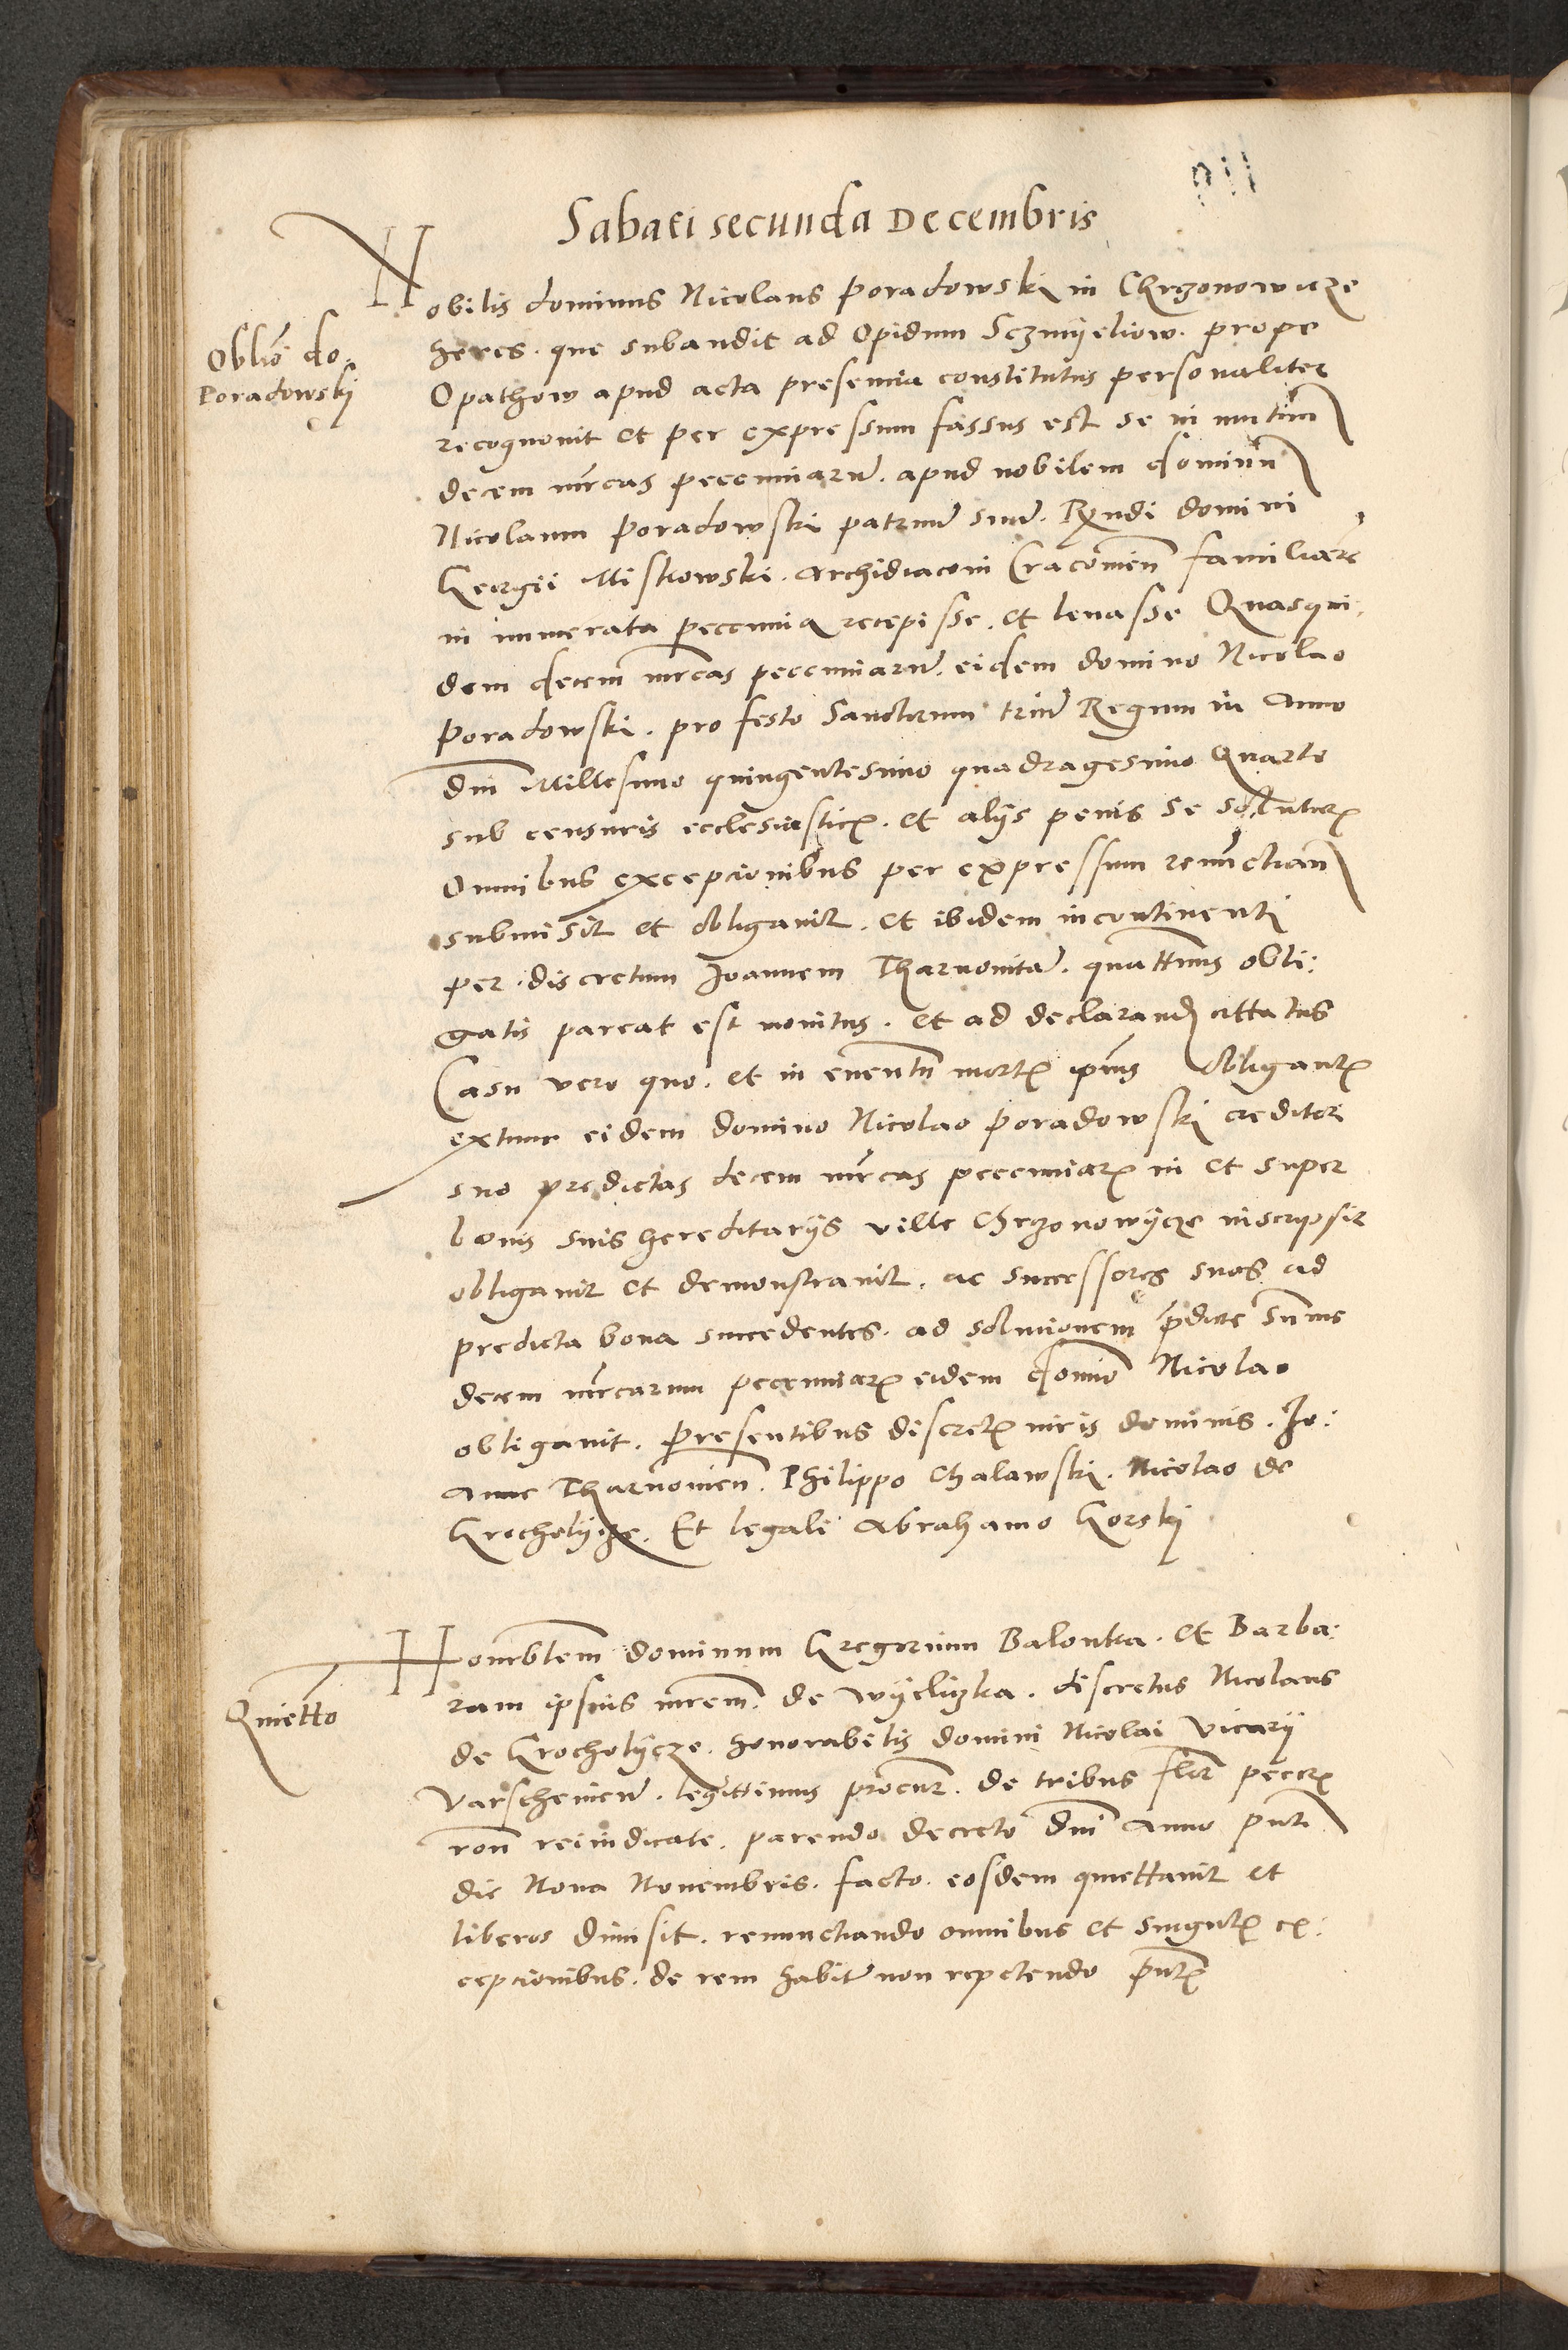 Sabati secunda Decembris
Nobilis dominus Nicolaus Poradowski in Chrzonowicze
heres. que subaudit ad Opidum Sczmyeliow. prope
Oblio do.
Poradowski
Opathow apud acta presencia constitutus personaliter
recognovit et per expressum fassus est se in mutuum
decem mrcas pecuniaru. apud nobilem dominu
Nicolaum Poradowski patruu suu. Rndi domini
Georgii Miskowski. Archidiaconi Cracovien familiare
in numerata pecunia recepisse. et levasse Quasqui:
dem decem mrcas pecuniaru. eidem domino Nicolao
Poradowski. pro festo Sanctorum triu Regum in Anno
dni Millesimo quingentesimo quadragesimo Quarto
sub censuris ecclesiastic. et alys penis se solutur
Omnibus excepcionibus per expressum renunctian
submisit et obligavit. et ibidem incontinenti
per discretum Joannem Tharnovita. quattenus obli:
gatis pareat est monitus. et ad declarand cittatus
Casu vero quo. et in eventu mort ipius obligant
extunc eidem domino Nicolao Poradowski creditori
suo predictas decem mrcas pecuniar in et super
bonis suis hereditarys ville Chrzonowycze inscripsit
obligavit et demonstravit. ac successores suos ad
predicta bona succedentes. ad solucionem pdicte sume
decem mrcarum pecuniar eidem domio Nicolao
obligavit. Presentibus discret viris dominis. Jo:
anne Tharnovien. Philippo Chalawski. Nicolao de
Grocholycze. Et legali Abrahamo Gorski
Honorablem dominum Gregorium Balonka. et Barba:
ram ipsius mrem. de Wyeliczka. discretus Nicolaus
Quietto
de Grocholycze. honorabilis domini Nicolai Vicary
Varschevien. legittimus procur. de tribus flor pecur
ron reiudicate. parendo decreto dni Anno pnti
die Nona Novembris. facto. eosdem quiettavit et
liberos dimisit. renunctiando omnibus et singul ex:
cepcionibus. de rem habit non repetendo pnt